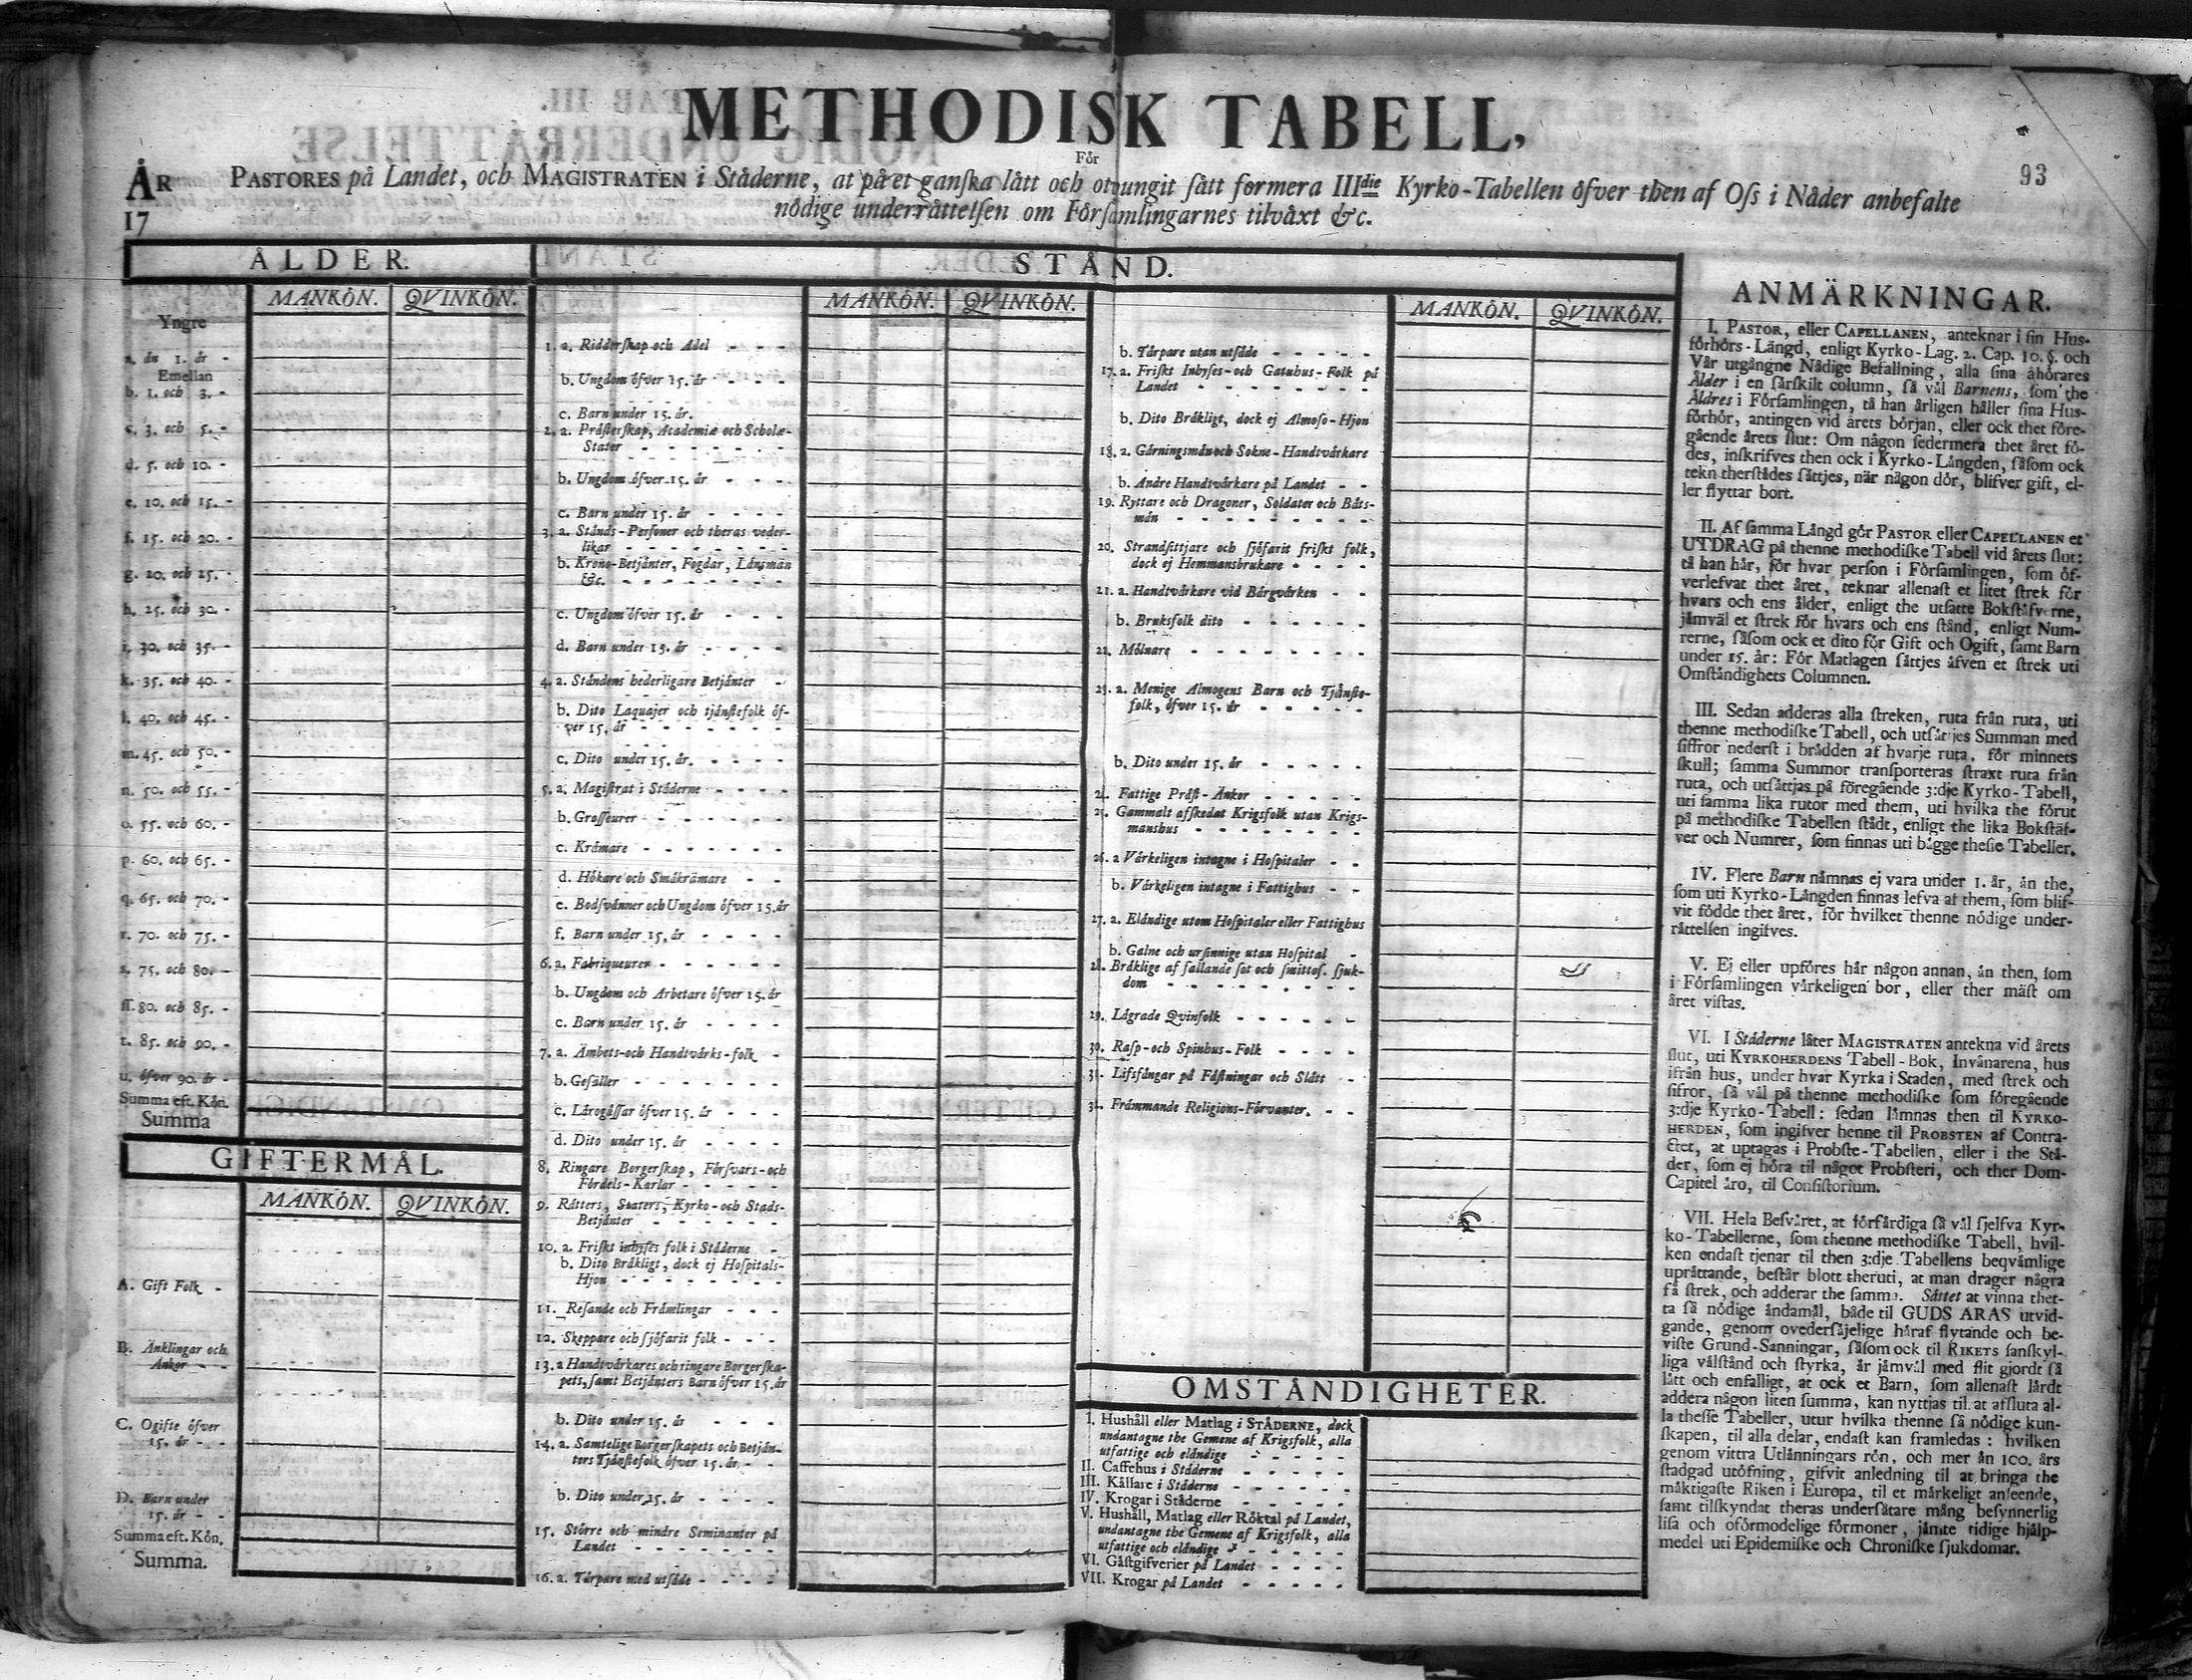 METHODISK TABELL,
För
93
ÅR
17
PASTORES på Landet, och MAGISTRATEN i Ståderne, at på et ganſka lått och otvungit ſått formera IIIdie Kyrko-Tabellen öfver then af Oſs i Nåder anbefalte
nödige underråttelſen om Förſamlingarnes tilvåxt &c.
ÅLDER.
MANKÖN. QVINKÖN.
Yngre
a. än 1. år -
Emellan
b. 1. och 3. -
c. 3. och 5. -
d. 5. och 10. -
e. 10. och 15. -
f. 15. och 20. -
g. 20. och 25. -
h. 25. och 30. -
i. 30. och 35. -
k. 35. och 40. -
l. 40. och 45. -
m. 45. och 50. -
n. 50. och 55. -
o. 55. och 60. -
p. 60. och 65. -
q. 65. och 70. -
r. 70. och 75. -
s. 75. och 80. -
ſſ. 80. och 85. -
t. 85. och 90. -
u. öfver 90. år -
Summa eft. Kön.
Summa
GIFTERMÅL.
MANKÖN. QVINKÖN.
A. Gift Folk -
B. Änklingar och
Änkor - -
C. Ogifte öfver
15. år - -
D. Barn under
15. år - -
Summa eft. Kön.
Summa.
STÅND.
MANKÖN. QVINKÖN.
1. a. Ridderſkap och Adel - - -
b. Ungdom öfver 15. år - - -
c. Barn under 15. år.
2. a. Pråſterſkap, Academiæ och Scholæ-
Stater - - - - - -
b. Ungdom öfver 15. år - - -
c. Barn under 15. år - - - -
3. a. Stånds-Perſoner och theras veder-
likar - - - - - - -
b. Krono-Betjänter, Fogdar, Länsmän
&c. - - - - - - -
c. Ungdom öfver 15. år - - -
d. Barn under 15. år - - - -
4. a. Ståndens hederligare Betjänter -
b. Dito Laquajer och tjänſtefolk öf-
ver 15. år - - - - - -
c. Dito under 15. år. - - - -
5. a. Magiſtrat i Ståderne - - - -
b. Groſſeurer - - - - - -
c. Krämare - - - - - -
d. Hökare och Småkrämare - -
e. Bodſvänner och Ungdom öfver 15. år
f. Barn under 15. år - - - -
6. a. Fabriqueurer - - - - - -
b. Ungdom och Arbetare öfver 15. år
c. Barn under 15. år - - - -
7. a. Ämbets-och Handtvårks-folk -
b. Geſäller - - - - - -
c. Lärogåſſar öfver 15. år - - -
d. Dito under 15. år - - - -
8. Ringare Borgerſkap, Förſvars-och
Fördels-Karlar - - - - -
9. Råtters, Staters, Kyrko-och Stads-
Betjänter - - - - - -
10. a. Friſkt inhyſes folk i Ståderne -
b. Dito Bråkligt, dock ej Hoſpitals-
Hjon - - - - - - -
11. Reſande och Främlingar - - -
12. Skeppare och ſjöfarit folk - - -
13. a Handtvårkares och ringare Borgerſka-
pets, ſamt Betjänters Barn öfver 15. år
b. Dito under 15. år - - -
14. a. Samtelige Borgerſkapets och Betjän-
ters Tjänſtefolk öfver 15. år - -
b. Dito under 15. år - - - -
15. Större och mindre Seminanter på
Landet - - - - - - -
16. a. Tårpare med utſäde - - - -
MANKÖN. QVINKÖN.
b. Tårpare utan utſäde - - - - -
17. a. Friſkt Inhyſes-och Gatuhus-Folk på
Landet - - - - - - - -
b. Dito Bråkligt, dock ej Almoſo-Hjon
18. a. Gårningsmän och Sokne-Handtvårkare
b. Andre Handtvårkare på Landet - -
19. Ryttare och Dragoner, Soldater och Båts-
män - - - - - - - - -
20. Strandſittjare och ſjöfarit friſkt folk,
dock ej Hemmansbrukare - - - -
21. a. Handtvårkare vid Bårgvårken - -
b. Bruksfolk dito - - - - - -
22. Mölnare - - - - - - - -
23. a. Menige Almogens Barn och Tjänſte-
folk, öfver 15. år - - - - -
b. Dito under 15. år - - - - -
24. Fattige Präſt-Änkor - - - - -
25. Gammalt afſkedat Krigsfolk utan Krigs-
manshus - - - - - - - -
26. a Vårkeligen intagne i Hoſpitaler - -
b. Vårkeligen intagne i Fattighus - -
27. a. Eländige utom Hoſpitaler eller Fattighus
b. Galne och urſinnige utan Hoſpital -
28. Bråklige af fallande ſot och ſmittoſ. ſjuk-
dom - - - - - - - - -
29. Lägrade Qvinfolk - - - - - -
30. Raſp-och Spinhus-Folk - - - -
31. Lifsfångar på Fäſtningar och Slått -
32. Främmande Religions-Förvanter. - -
OMSTÅNDIGHETER.
I. Hushåll eller Matlag i STÅDERNE, dock
undantagne the Gemene af Krigsfolk, alla
utfattige och eländige - - - - -
II. Caffehus i Ståderne - - - - - -
III. Kållare i Ståderne - - - - - -
IV. Krogar i Ståderne - - - - -
V. Hushåll, Matlag eller Röktal på Landet,
undantagne the Gemene af Krigsfolk, alla
utfattige och eländige - - - - -
VI. Gåſtgifverier på Landet - - - -
VII. Krogar på Landet - - - - -
ANMÄRKNINGAR.
I. PASTOR, eller CAPELLANEN, anteknar i ſin Hus-
förhörs-Längd, enligt Kyrko-Lag. 2. Cap. 10. §. och
Vår utgångne Nådige Befallning, alla ſina åhörares
Ålder i en ſårſkilt column, ſå vål Barnens, ſom the
Äldres i Förſamlingen, tå han årligen håller ſina Hus-
förhör, antingen vid årets början, eller ock thet före-
gående årets ſlut: Om någon ſedermera thet året fö-
des, inſkrifves then ock i Kyrko-Långden, ſåſom ock
tekn therſtådes ſåttjes, når någon dör, blifver gift, el-
ler flyttar bort.
II. Af ſamma Långd gör PASTOR eller CAPELLANEN et
UTDRAG på thenne methodiſke Tabell vid årets ſlut:
tå han hår, för hvar perſon i Förſamlingen, ſom öf-
verlefvat thet året, teknar allenaſt et litet ſtrek för
hvars och ens ålder, enligt the utſatte Bokſtäfverne,
jämväl et ſtrek för hvars och ens ſtånd, enligt Num-
rerne, ſåſom ock et dito för Gift och Ogift, ſamt Barn
under 15. år: För Matlagen ſåttjes åfven et ſtrek uti
Omſtåndighets Columnen.
III. Sedan adderas alla ſtreken, ruta från ruta, uti
thenne methodiſke Tabell, och utſåttjes Summan med
ſiffror nederſt i brådden af hvarje ruta, för minnets
ſkull; ſamma Summor tranſporteras ſtraxt ruta från
ruta, och utſåttjas på föregående 3:dje Kyrko-Tabell,
uti ſamma lika rutor med them, uti hvilka the förut
på methodiſke Tabellen ſtådt, enligt the lika Bokſtäf-
ver och Numrer, ſom finnas uti bägge theſſe Tabeller.
IV. Flere Barn nåmnas ej vara under 1. år, än the,
ſom uti Kyrko-Långden finnas lefva af them, ſom blif-
vit födde thet året, för hvilket thenne nödige under-
råttelſen ingifves.
V. Ej eller upföres hår någon annan, än then, ſom
i Förſamlingen vårkeligen bor, eller ther mäſt om
året viſtas.
VI. I Ståderne låter MAGISTRATEN antekna vid årets
ſlut, uti KYRKOHERDENS Tabell-Bok, Invånarena, hus
ifrån hus, under hvar Kyrka i Staden, med ſtrek och
ſifror, ſå väl på thenne methodiſke ſom föregående
3:dje Kyrko-Tabell: ſedan lämnas then til KYRKO-
HERDEN, ſom ingifver henne til PROBSTEN af Contra-
ctet, at uptagas i Probſte-Tabellen, eller i the Stå-
der, ſom ej höra til något Probſteri, och ther Dom-
Capitel åro, til Conſiſtorium.
VII. Hela Beſväret, at förfårdiga ſå väl ſjelfva Kyr-
ko-Tabellerne, ſom thenne methodiſke Tabell, hvil-
ken endaſt tjenar til then 3:dje Tabellens beqvämlige
upråttande, beſtår blott theruti, at man drager några
få ſtrek, och adderar the ſamma. Såttet at vinna thet-
ta ſå nödige åndamål, både til GUDS ÅRAS utvid-
gande, genom overderſåjelige håraf flytande och be-
viſte Grund-Sanningar, ſåſom ock til RIKETS ſanſkyl-
liga vålſtånd och ſtyrka, år jåmvål med flit gjordt ſå
lått och enfalligt, at ock et Barn, ſom allenaſt lårdt
addera någon liten ſumma, kan nyttjas til at afſluta al-
la theſſe Tabeller, utur hvilka thenne ſå nödige kun-
ſkapen, til alla delar, endaſt kan framledas: hvilken
genom vittra Utlånningars rön, och mer ån 100. års
ſtadgad utöfning, gifvit anledning til at bringa the
måktigaſte Riken i Europa, til et mårkeligt anſeende,
ſamt tilſkyndat theras underſåtare mång beſynnerlig
liſa och oförmodelige förmoner, jåmte tidige hjälp-
medel uti Epidemiſke och Chroniſke ſjukdomar.